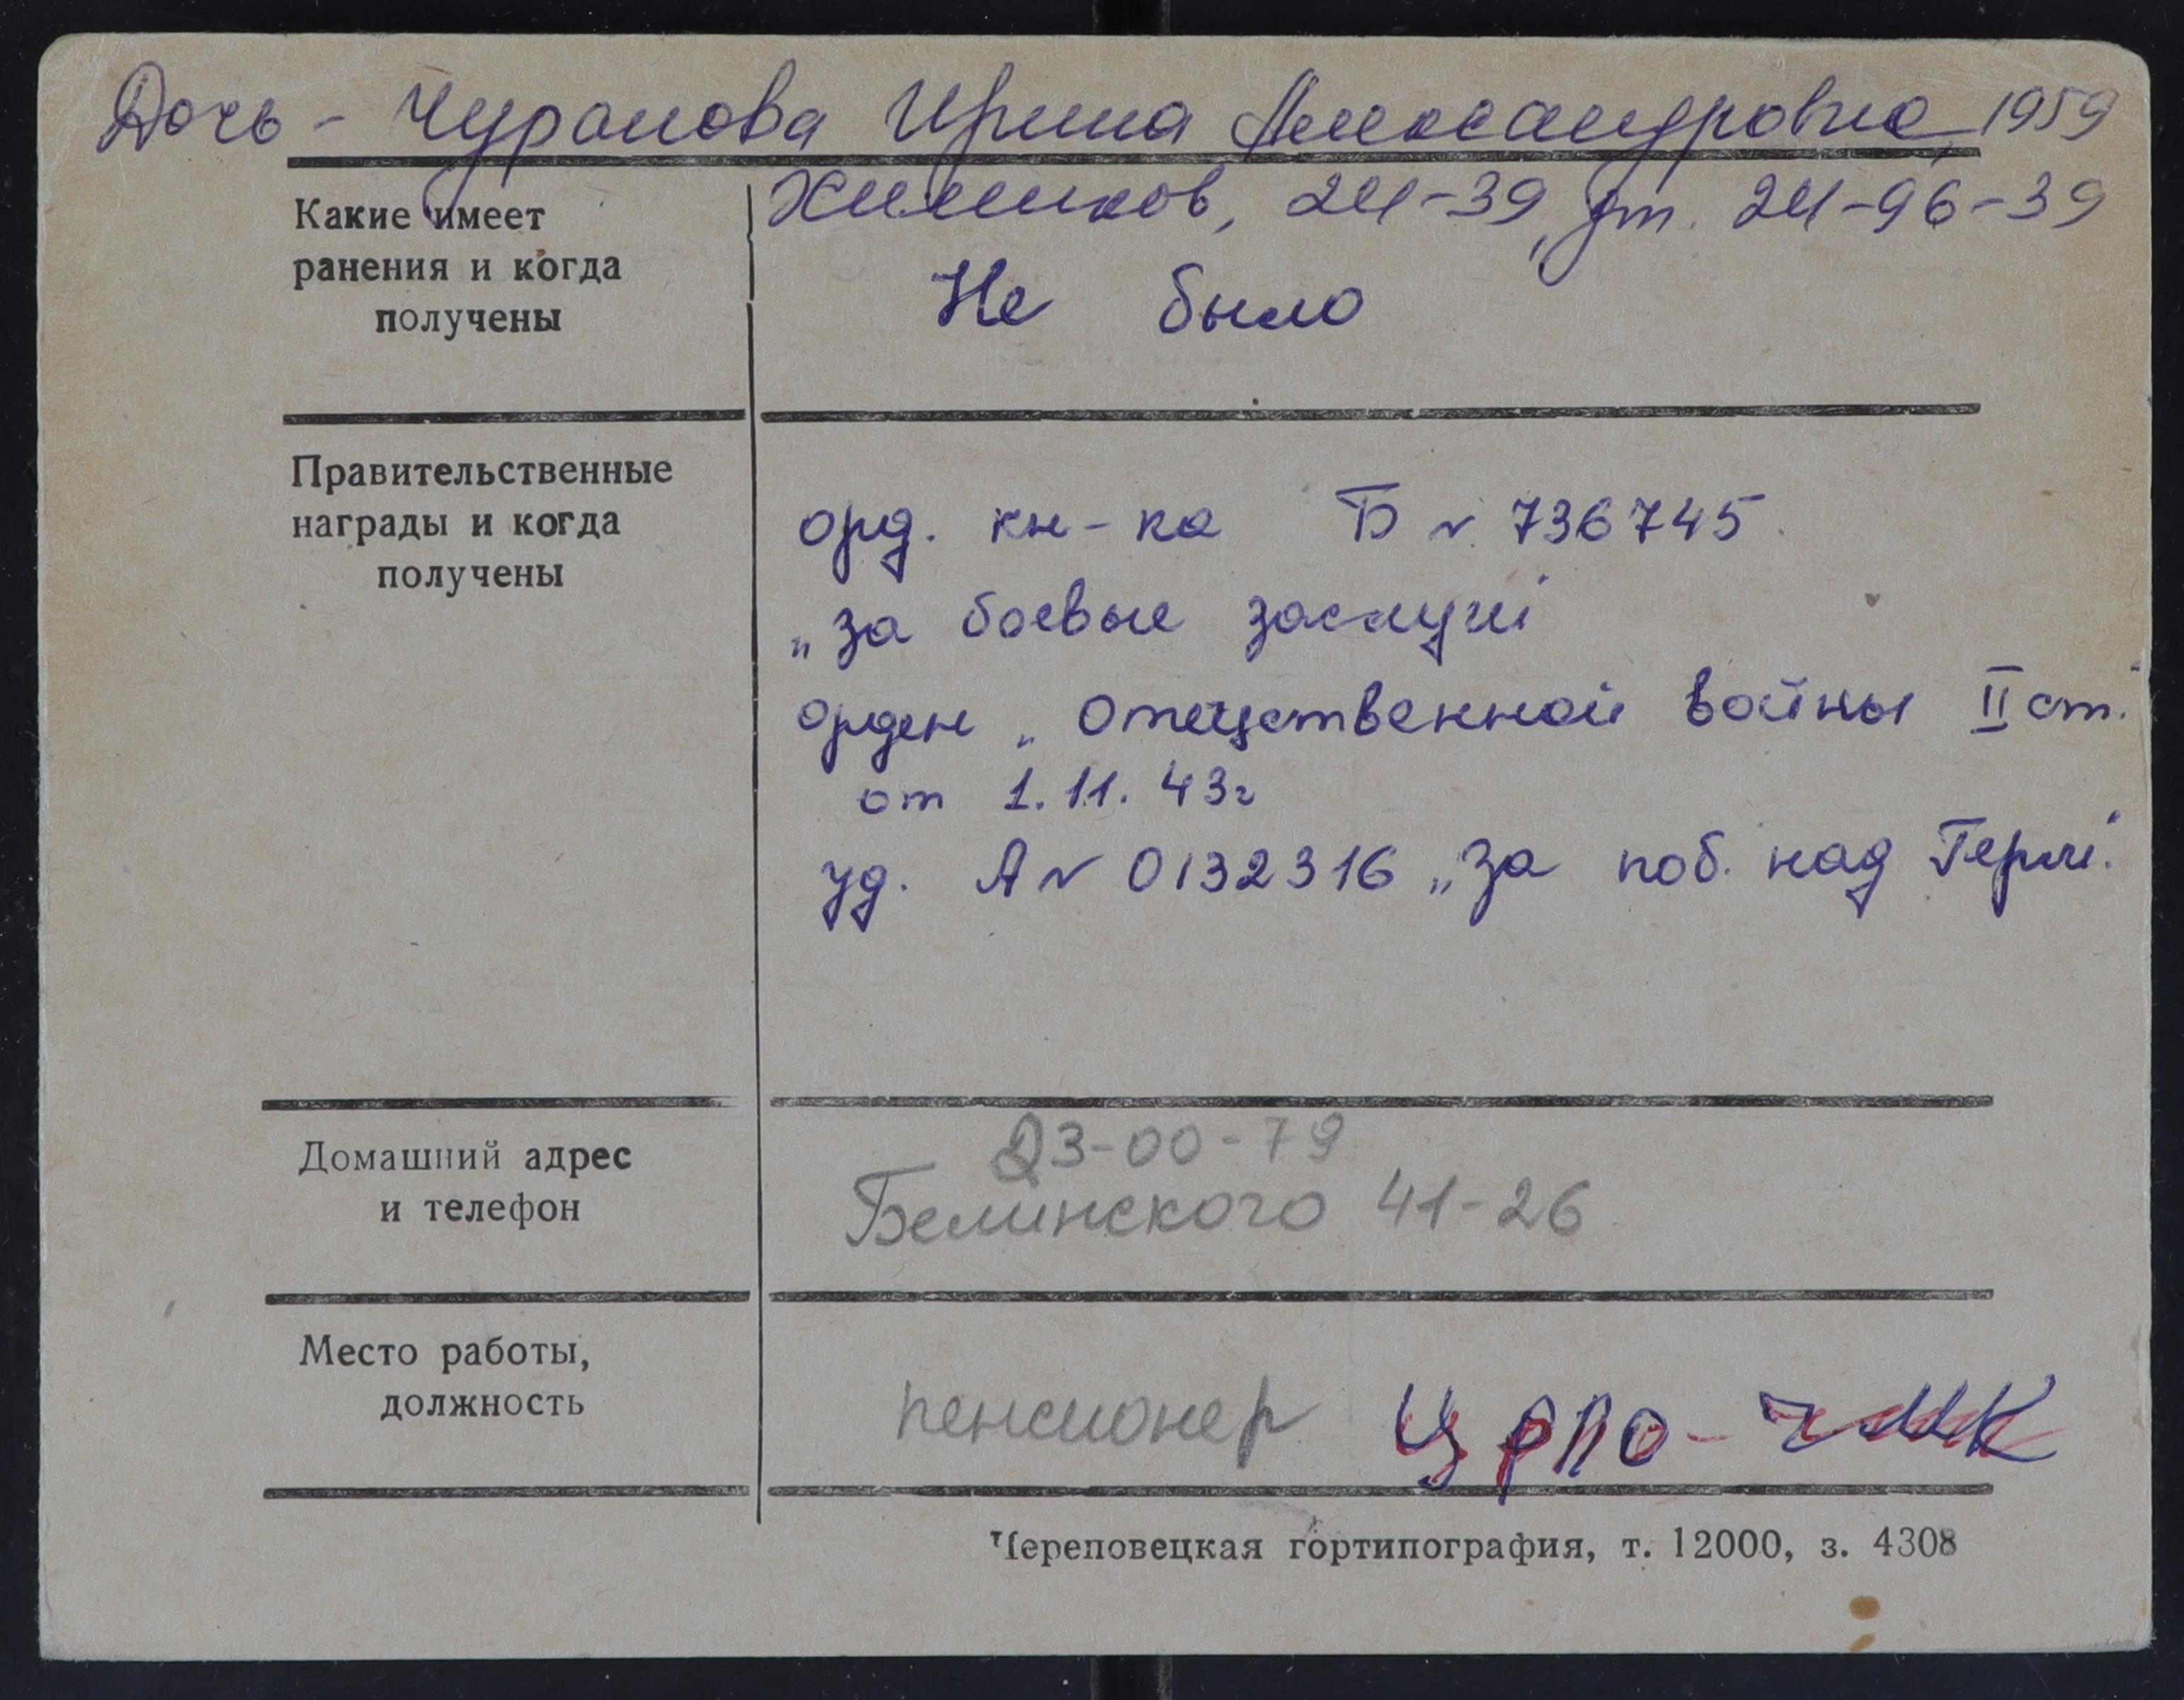 Дочь - Чуранова Ирина Александровна, 1959
Химиков, 24-39, дт. 24-96-39
Какие имеет
ранения и когда
получены
Не было
Правительственные
награды и когда
получены
орд. кн-ка Б № 736745
„За боевые заслуги"
орден „Отечественной войны II ст."
от 1.11.43г
уд. А№ 0132316 „За поб. над Герм."
Домашний адрес
и телефон
23-00-79
Белинского 41-26
Место работы,
должность
пенсионер ЦРПО-ЧМК
Череповецкая гортипография, т. 12000, з. 4308